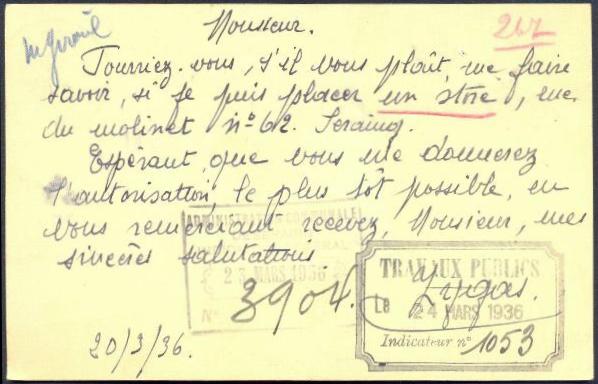 Monsieur.
267
Pourriez-vous, s'il vous plaît, me faire
savoir, si je puis placer un store, rue
du molinet n° 62. Seraing.
Espérant que vous me donnerez
l'autorisation, le plus tôt possible, en
vous remerciant recevez, Monsieur, mes
sincères salutations
ADMINISTRATION COMMUNALE
23 MARS 1936
N° 3904.
TRAVAUX PUBLICS
LE 24 MARS 1936
Indicateur n° 1053
20/3/36.